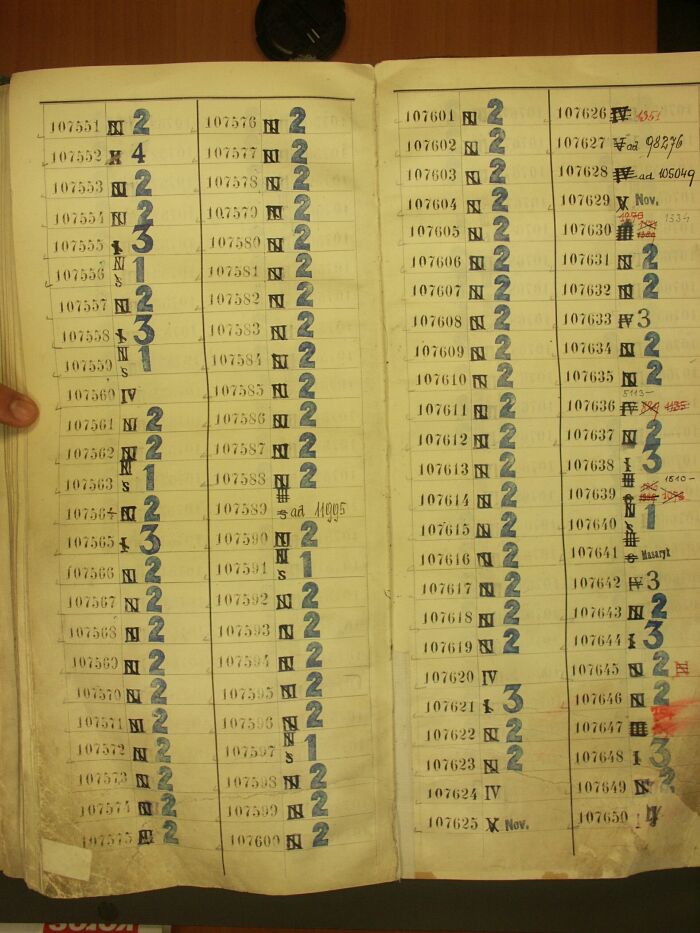 107551 N 2
107552 4
107553 N 2
107554 N 2
107555 I 3
107556 N S 1
107557 N 2
107558 I 3
107559 N S 1
107560 IV
107561 N 2
107562 N 2
107563 N S 1
107564 N 2
107565 I 3
107566 N 2
107567 N 2
107568 N 2
107569 N 2
107570 N 2
107571 N 2
107572 N 2
107573 N 2
107574 N 2
107575 2
107576 N 2
107577 N 2
107578 N 2
107579 N 2
107580 N 2
107581 N 2
107582 N 2
107583 N 2
107584 N 2
107585 N 2
107586 N 2
107587 N 2
107588 N 2
107589 III S ad 11995
107590 N 2
107591 N S 1
107592 N 2
107593 N 2
107594 N 2
107595 N 2
107596 N 2
107597 N S 1
107598 N 2
107599 N 2
107600 N 2
107601 N 2
107602 N 2
107603 N 2
107604 N 2
107605 N 2
107606 N 2
107607 N 2
107608 N 2
107609 N 2
107610 N 2
107611 N 2
107612 N 2
107613 N 2
107614 N 2
107615 N 2
107616 N 2
107617 N 2
107618 N 2
107619 N 2
107620 IV
107621 I 3
107622 N 2
107623 N 2
107624 IV
107625 V Nov.
107626 IV 1351
107627 V ad 98276
107628 IV ad 105049
107629 V Nov.
107630 III 1334
107631 N 2
107632 N 2
107633 IV 3
107634 N 2
107635 N 2
107636 5113- IV 1135
107637 N 2
107638 I 3
107639 III S 1510-
107640 N S 1
107641 III S Masaryk
107642 IV 3
107643 N 2
107644 I 3
107645 N 2
107646 N 2
107647 III
107648 I 3
107649 N 2
107650 IV